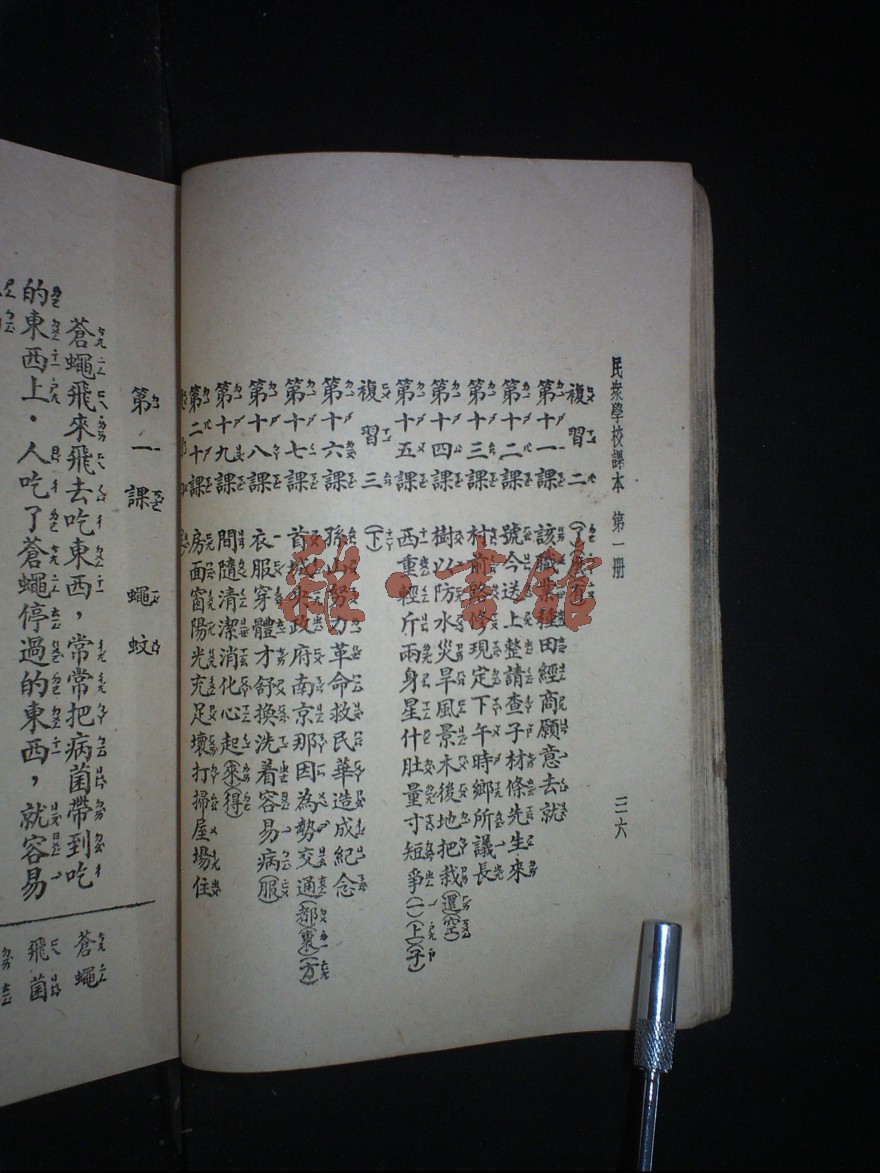 民衆學校課本 第一册
三六
複習二
第十一課 該職業種田經商願意去就
第十二課 號今送上整請查子材條先生來
第十三課 村前路修現定下午時鄉所議長
第十四課 樹以防水災旱風景木後地把栽(還)(空)
第十五課 西重輕斤兩身星什肚量寸短爭(一)(上)(子)
複習三 (下)
第十六課 孫山努力革命救民華造成紀念
第十七課 首城央政府南京那因為勢交通(都)(裏)(方)
第十八課 衣服穿體才舒換洗着容易病(服)
第十九課 間隨清潔消化心起(來)(得)
第二十課 房面窗陽光充足壞打掃屋場住
第一課 蠅蚊
蒼蠅飛來飛去吃東西，常常把病菌帶到吃
的東西上．人吃了蒼蠅停過的東西，就容易
蒼蠅
飛菌
雜·書館